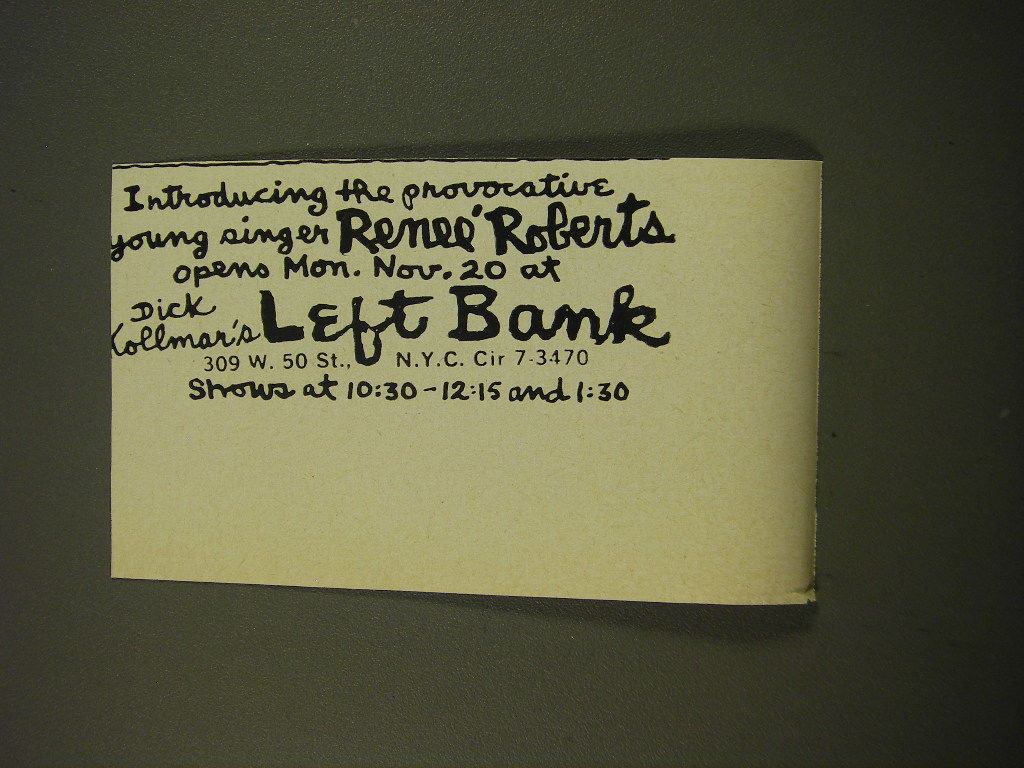 Introducing the provocative
young singer Reneé Roberts
opens Mon. Nov. 20 at
Dick
Kollmar's Left Bank
309 W. 50 St., N.Y.C. Cir 7-3470
Shows at 10:30 - 12:15 and 1:30